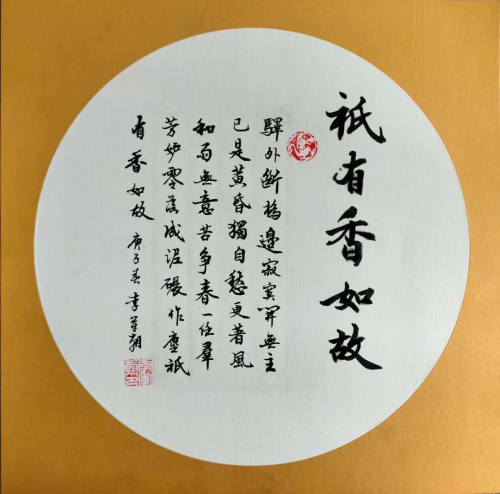 祇有香如故
驛外斷橋邊寂寞開無主
已是黃昏獨自愁更著風
和雨無意苦爭春一任羣
芳妒零落成泥碾作塵祇
有香如故 庚子春 李